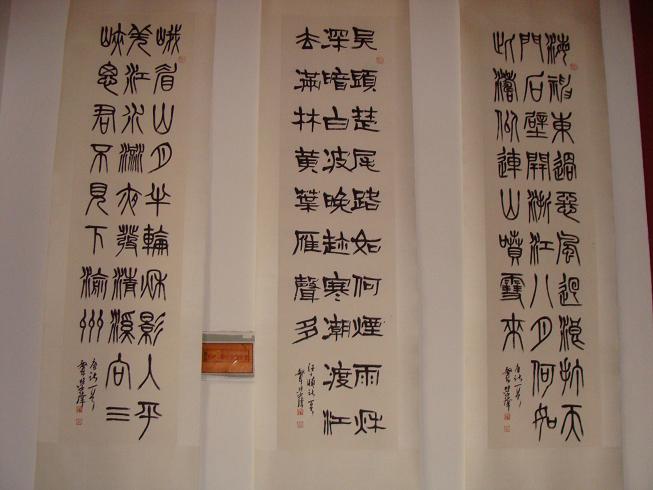 海神東過惡風迴浪打天
門石壁開浙江八月何如
此濤似連山噴雪來
唐詩一首
吳頭楚尾路如何煙雨秋
深暗白波晚趁寒潮渡江
去滿林黃葉雁聲多
峨眉山月半輪秋影入平
羌江水流夜發清溪向三
峽思君不見下渝州
唐詩一首